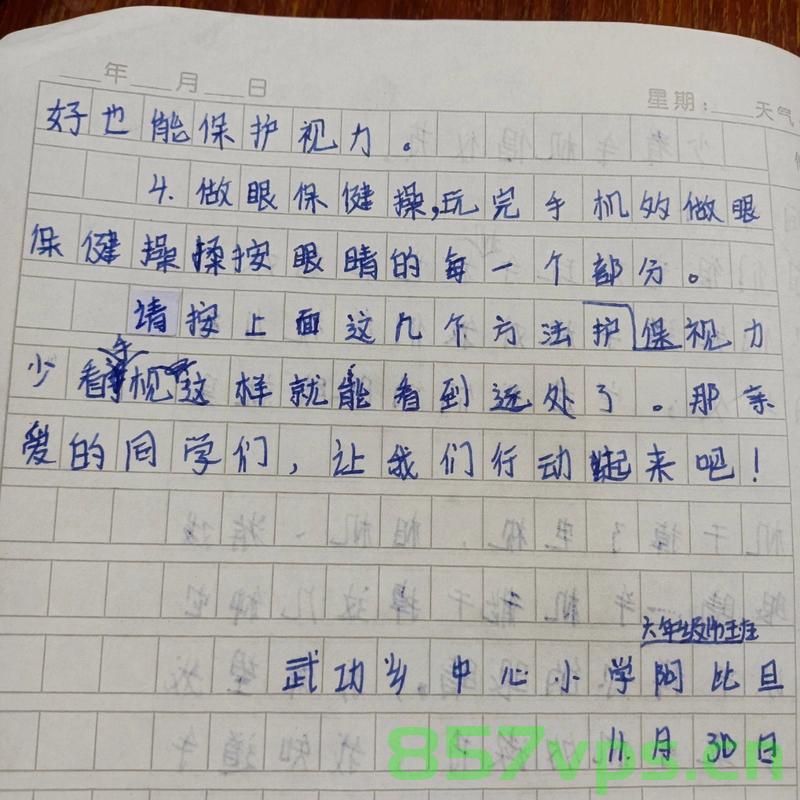 年 月 日 星期： 天气
好也能保护视力。
4. 做眼保健操,玩完手机的做眼
保健操揉按眼睛的每一个部分。
请按上面这几个方法护保视力
少看手机这样就能看到远处了。那亲
爱的同学们，让我们行动起来吧！
六年级
武功乡中心小学阿比旦
11.月30日
857vps.cn